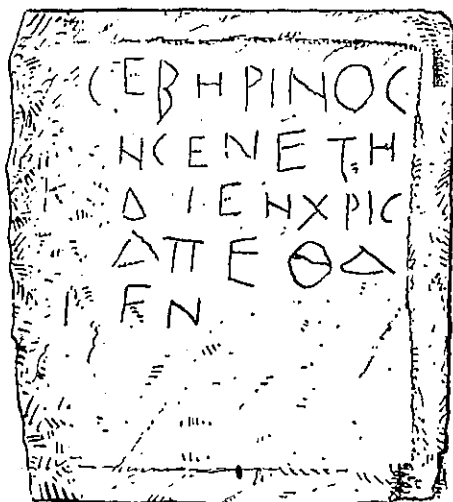 ϹΕΒΗΡΙΝΟϹ
ΗϹΕΝΕΤΗ
Δ ΙΕΝΧΡΙϹ
ΑΠΕΘΑ
ΕΝ